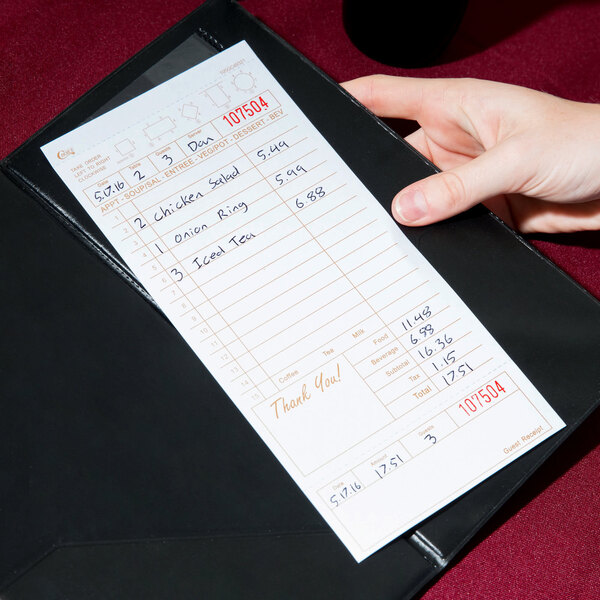 TAKE ORDER
LEFT TO RIGHT
CLOCKWISE
107504
Date Table Guests Server
5.17.16 2 3 Dan
APPT - SOUP/SAL - ENTREE - VEG/POT - DESSERT - BEV
1
2 2 Chicken Salad 5.49
3
4 1 Onion Ring 5.99
5
6 3 Iced Tea 6.88
7
8
9
10
11
12
13
14
15 Coffee Tea Milk
Thank You!
Food 11.48
Beverage 6.88
Subtotal 16.36
Tax 1.15
Total 17.51
107504
Date Amount Guests
5.17.16 17.51 3
Guest Receipt